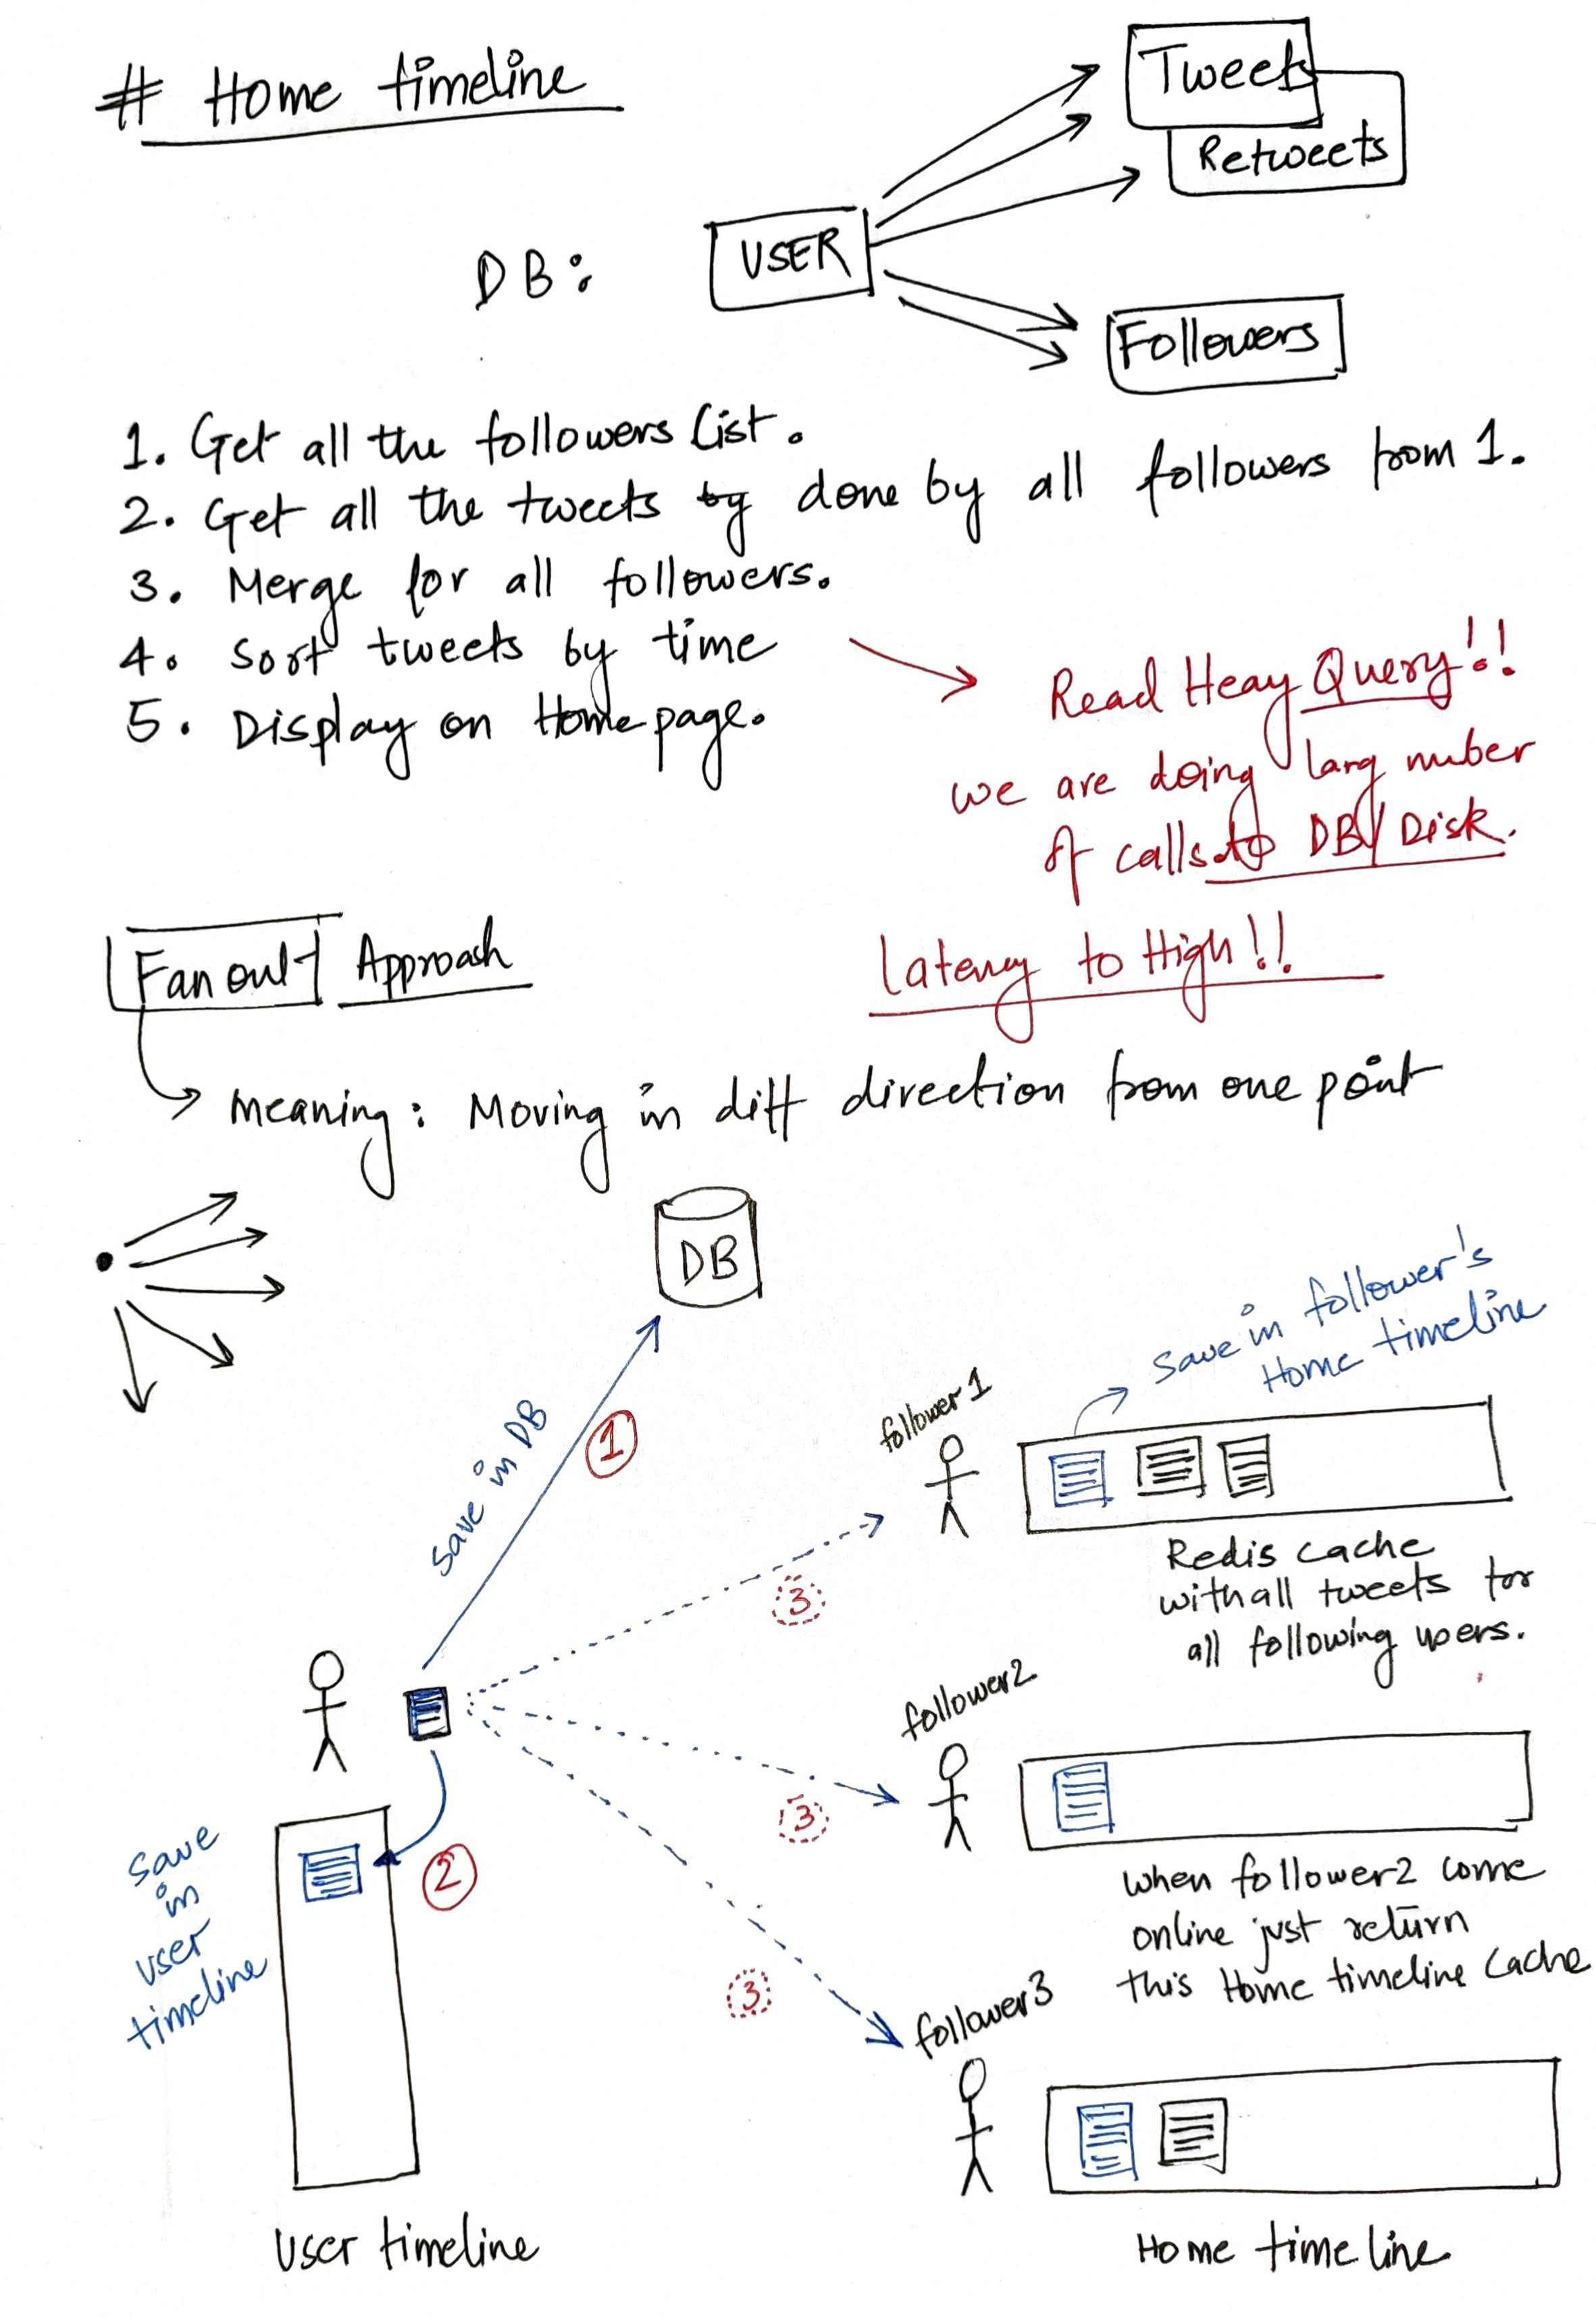 # Home timeline
Tweets
Retweets
DB:
USER
Followers
1. Get all the followers list.
2. Get all the tweets by done by all followers from 1.
3. Merge for all followers.
4. Sort tweets by time
5. Display on Homepage.
Read Heay Query!!
we are doing larg nuber
of calls to DB/Disk.
Latency to High!!
Fan out Approach
meaning: Moving in diff direction from one point
DB
Save in follower's
Home timeline
Save in DB
1
follower1
3
Redis cache
with all tweets for
all following users.
follower2
3
when follower2 come
online just return
this Home timeline Cache
Save
in
user
timeline
2
3
follower3
User timeline
Home time line